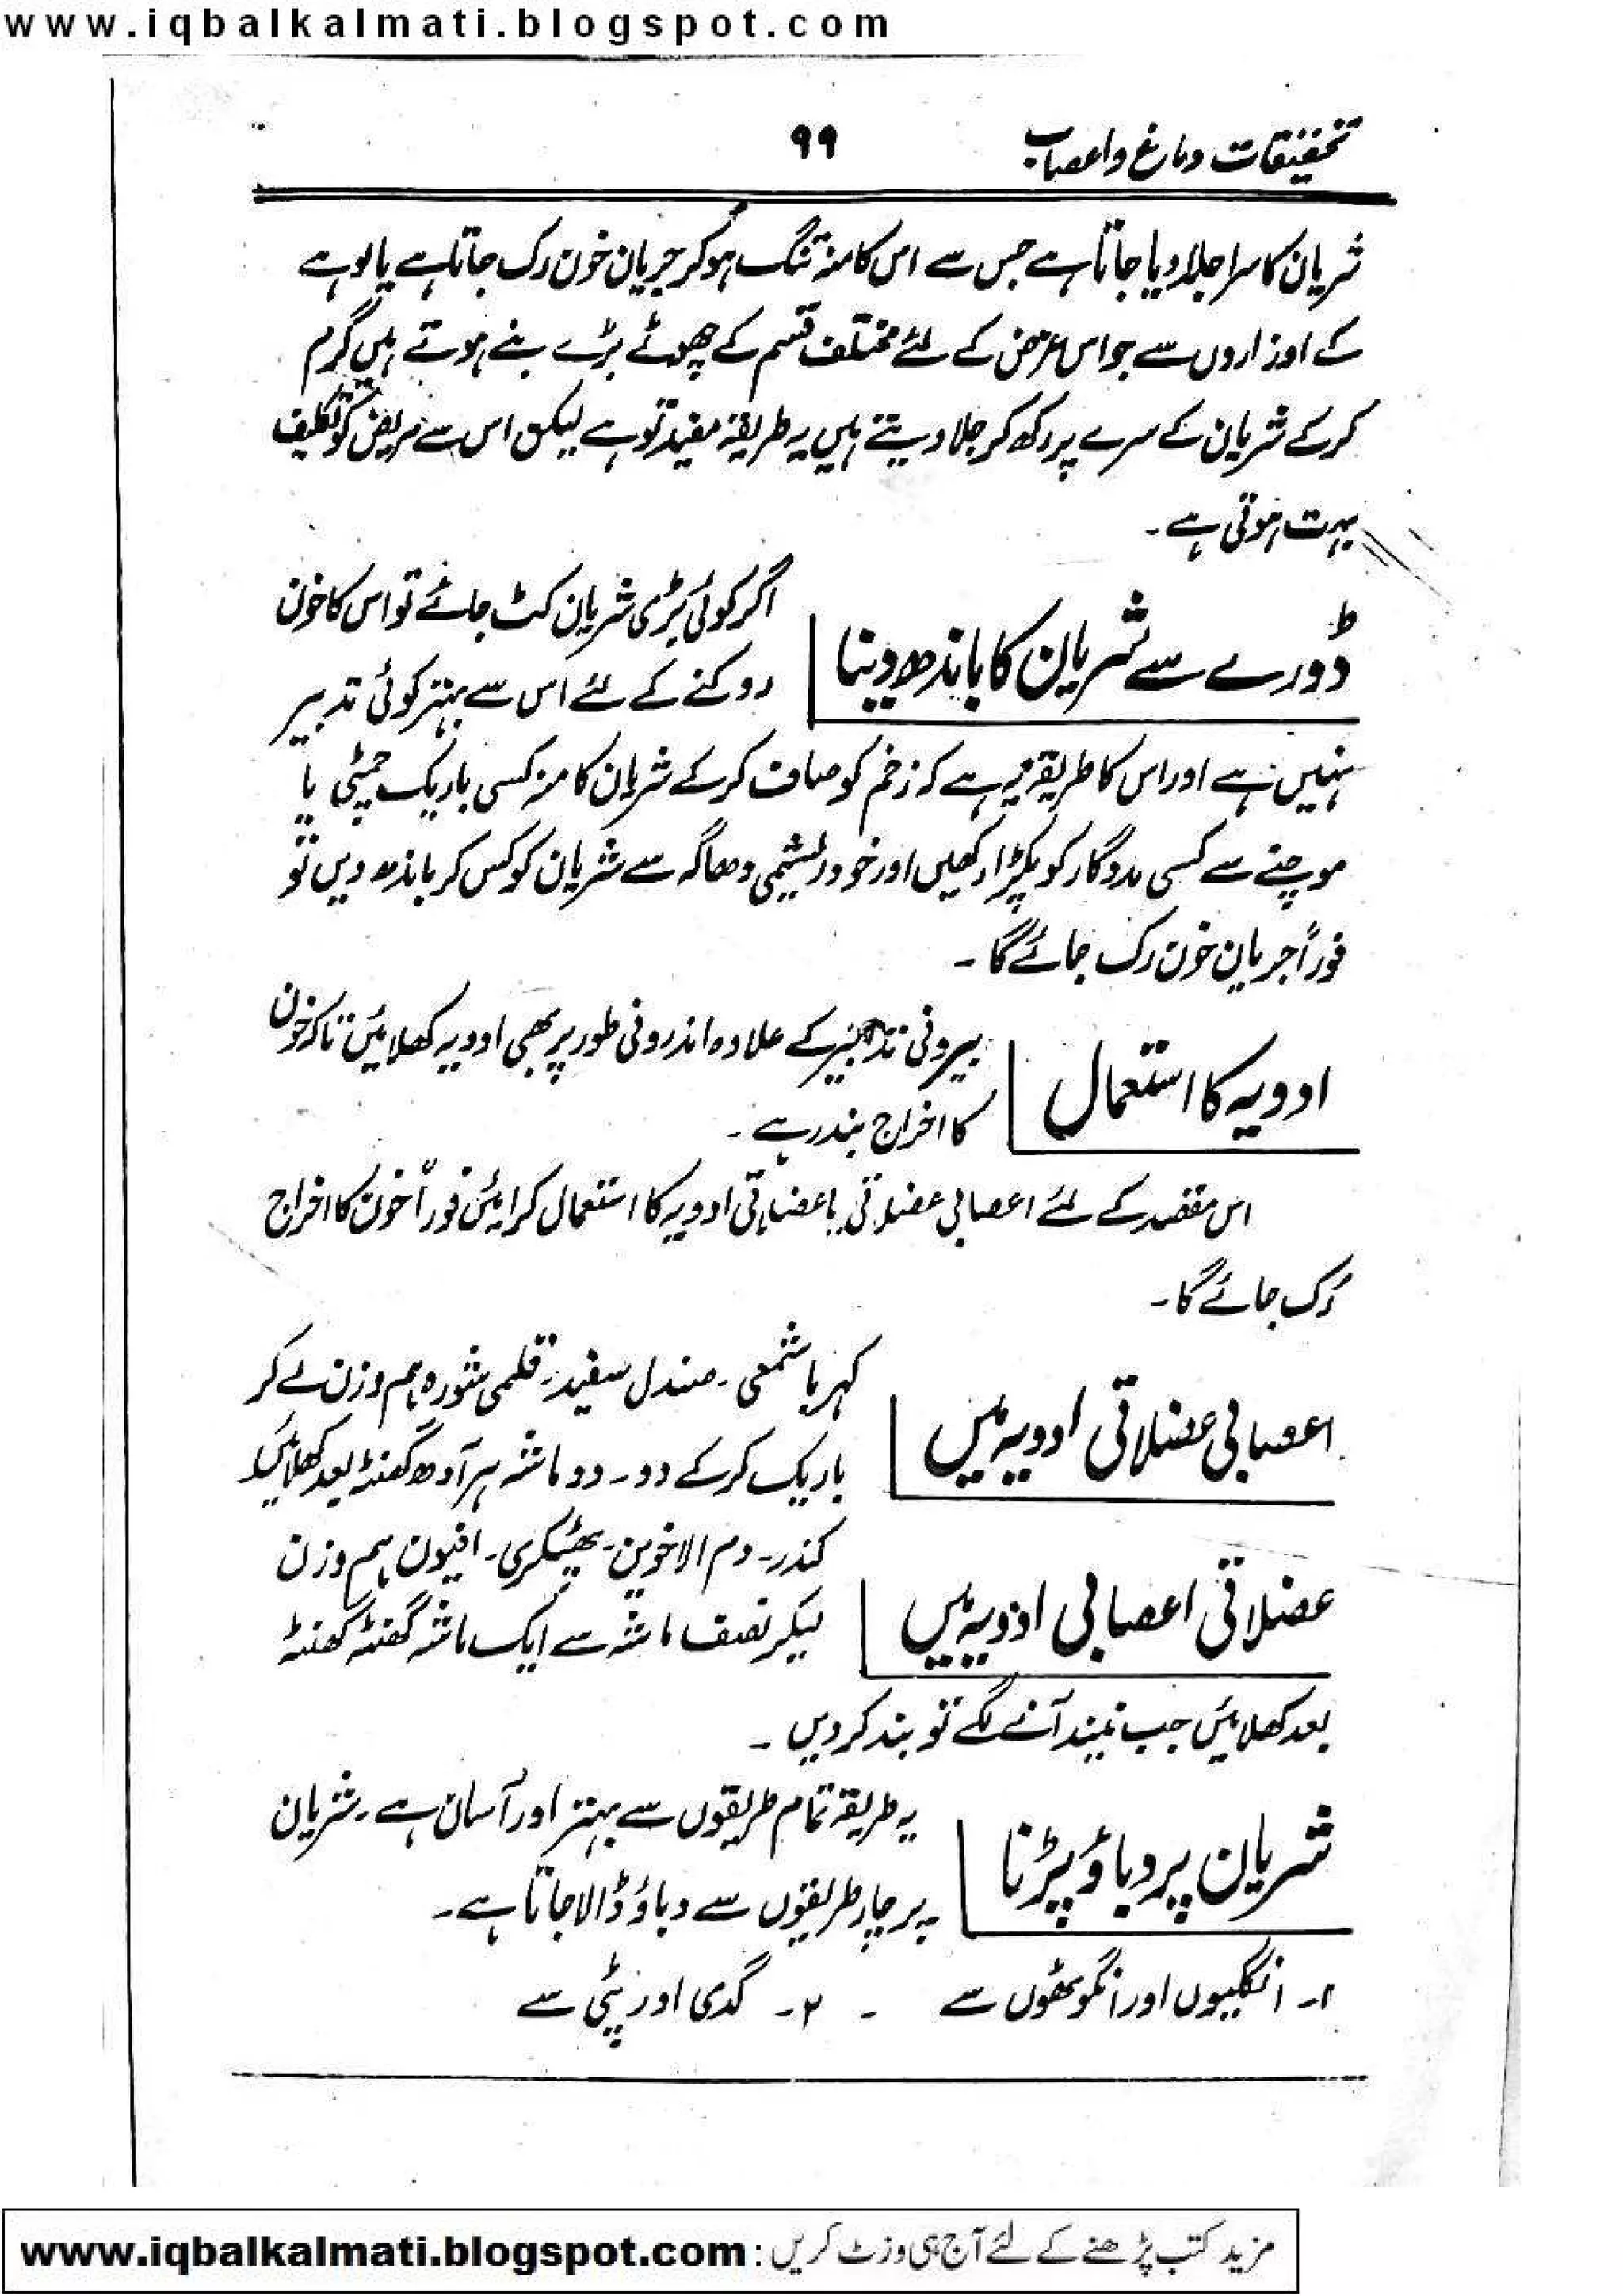 www.iqbalkalmati.blogspot.com
تحقیقات دماغ و اعصاب
۹۹
شریان کا سرا جلا دیا جاتا ہے جس سے اس کا منہ تنگ ہو کر جریان خون رک جاتا ہے یا لوہے
کے اوزاروں سے جو اس غرض کے لئے مختلف قسم کے چھوٹے بڑے بنے ہوتے ہیں گرم
کرکے شریان کے سرے پر رکھ کر جلا دیتے ہیں یہ طریقہ مفید تو ہے لیکن اس سے مریض کو تکلیف
بہت ہوتی ہے۔
ڈورے سے شریان کا باندھ دینا
اگر کوئی بڑی شریان کٹ جائے تو اس کا خون
روکنے کے لئے اس سے بہتر کوئی تدبیر
نہیں ہے اور اس کا طریقہ یہ ہے کہ زخم کو صاف کرکے شریان کا منہ کسی باریک چمٹی یا
موچنے سے کسی مددگار کو پکڑا رکھیں اور خود ریشمی دھاگہ سے شریان کو کس کر باندھ دیں تو
فوراً جریان خون رک جائے گا۔
ادویہ کا استعمال
بیرونی تدابیر کے علاوہ اندرونی طور پر بھی ادویہ کھلائیں تاکہ خون
کا اخراج بند رہے۔
اس مقصد کے لئے اعصابی عضلاتی یا عضلاتی ادویہ کا استعمال کرائیں فوراً خون کا اخراج
رُک جائے گا۔
اعصابی عضلاتی ادویہ میں
کہربا شمعی۔ صندل سفید۔ قلمی شورہ ہم وزن لے کر
باریک کرکے دو۔ دو ماشہ ہر آدھ گھنٹہ بعد کھلائیں
عضلاتی اعصابی ادویہ میں
کندر۔ دم الاخوین۔ پھٹکری۔ افیون ہم وزن
لیکر نصف ماشہ سے ایک ماشہ گھنٹہ گھنٹہ
بعد کھلائیں جب نیند آنے لگے تو بند کردیں۔
شریان پر دباؤ پڑنا
یہ طریقہ تمام طریقوں سے بہتر اور آسان ہے۔ شریان
پر چار طریقوں سے دباؤ ڈالا جاتا ہے۔
۱۔ انگلیوں اور انگوٹھوں سے ۔ ۲۔ گدی اور پٹی سے
مزید کتب پڑھنے کے لئے آج ہی وزٹ کریں : www.iqbalkalmati.blogspot.com